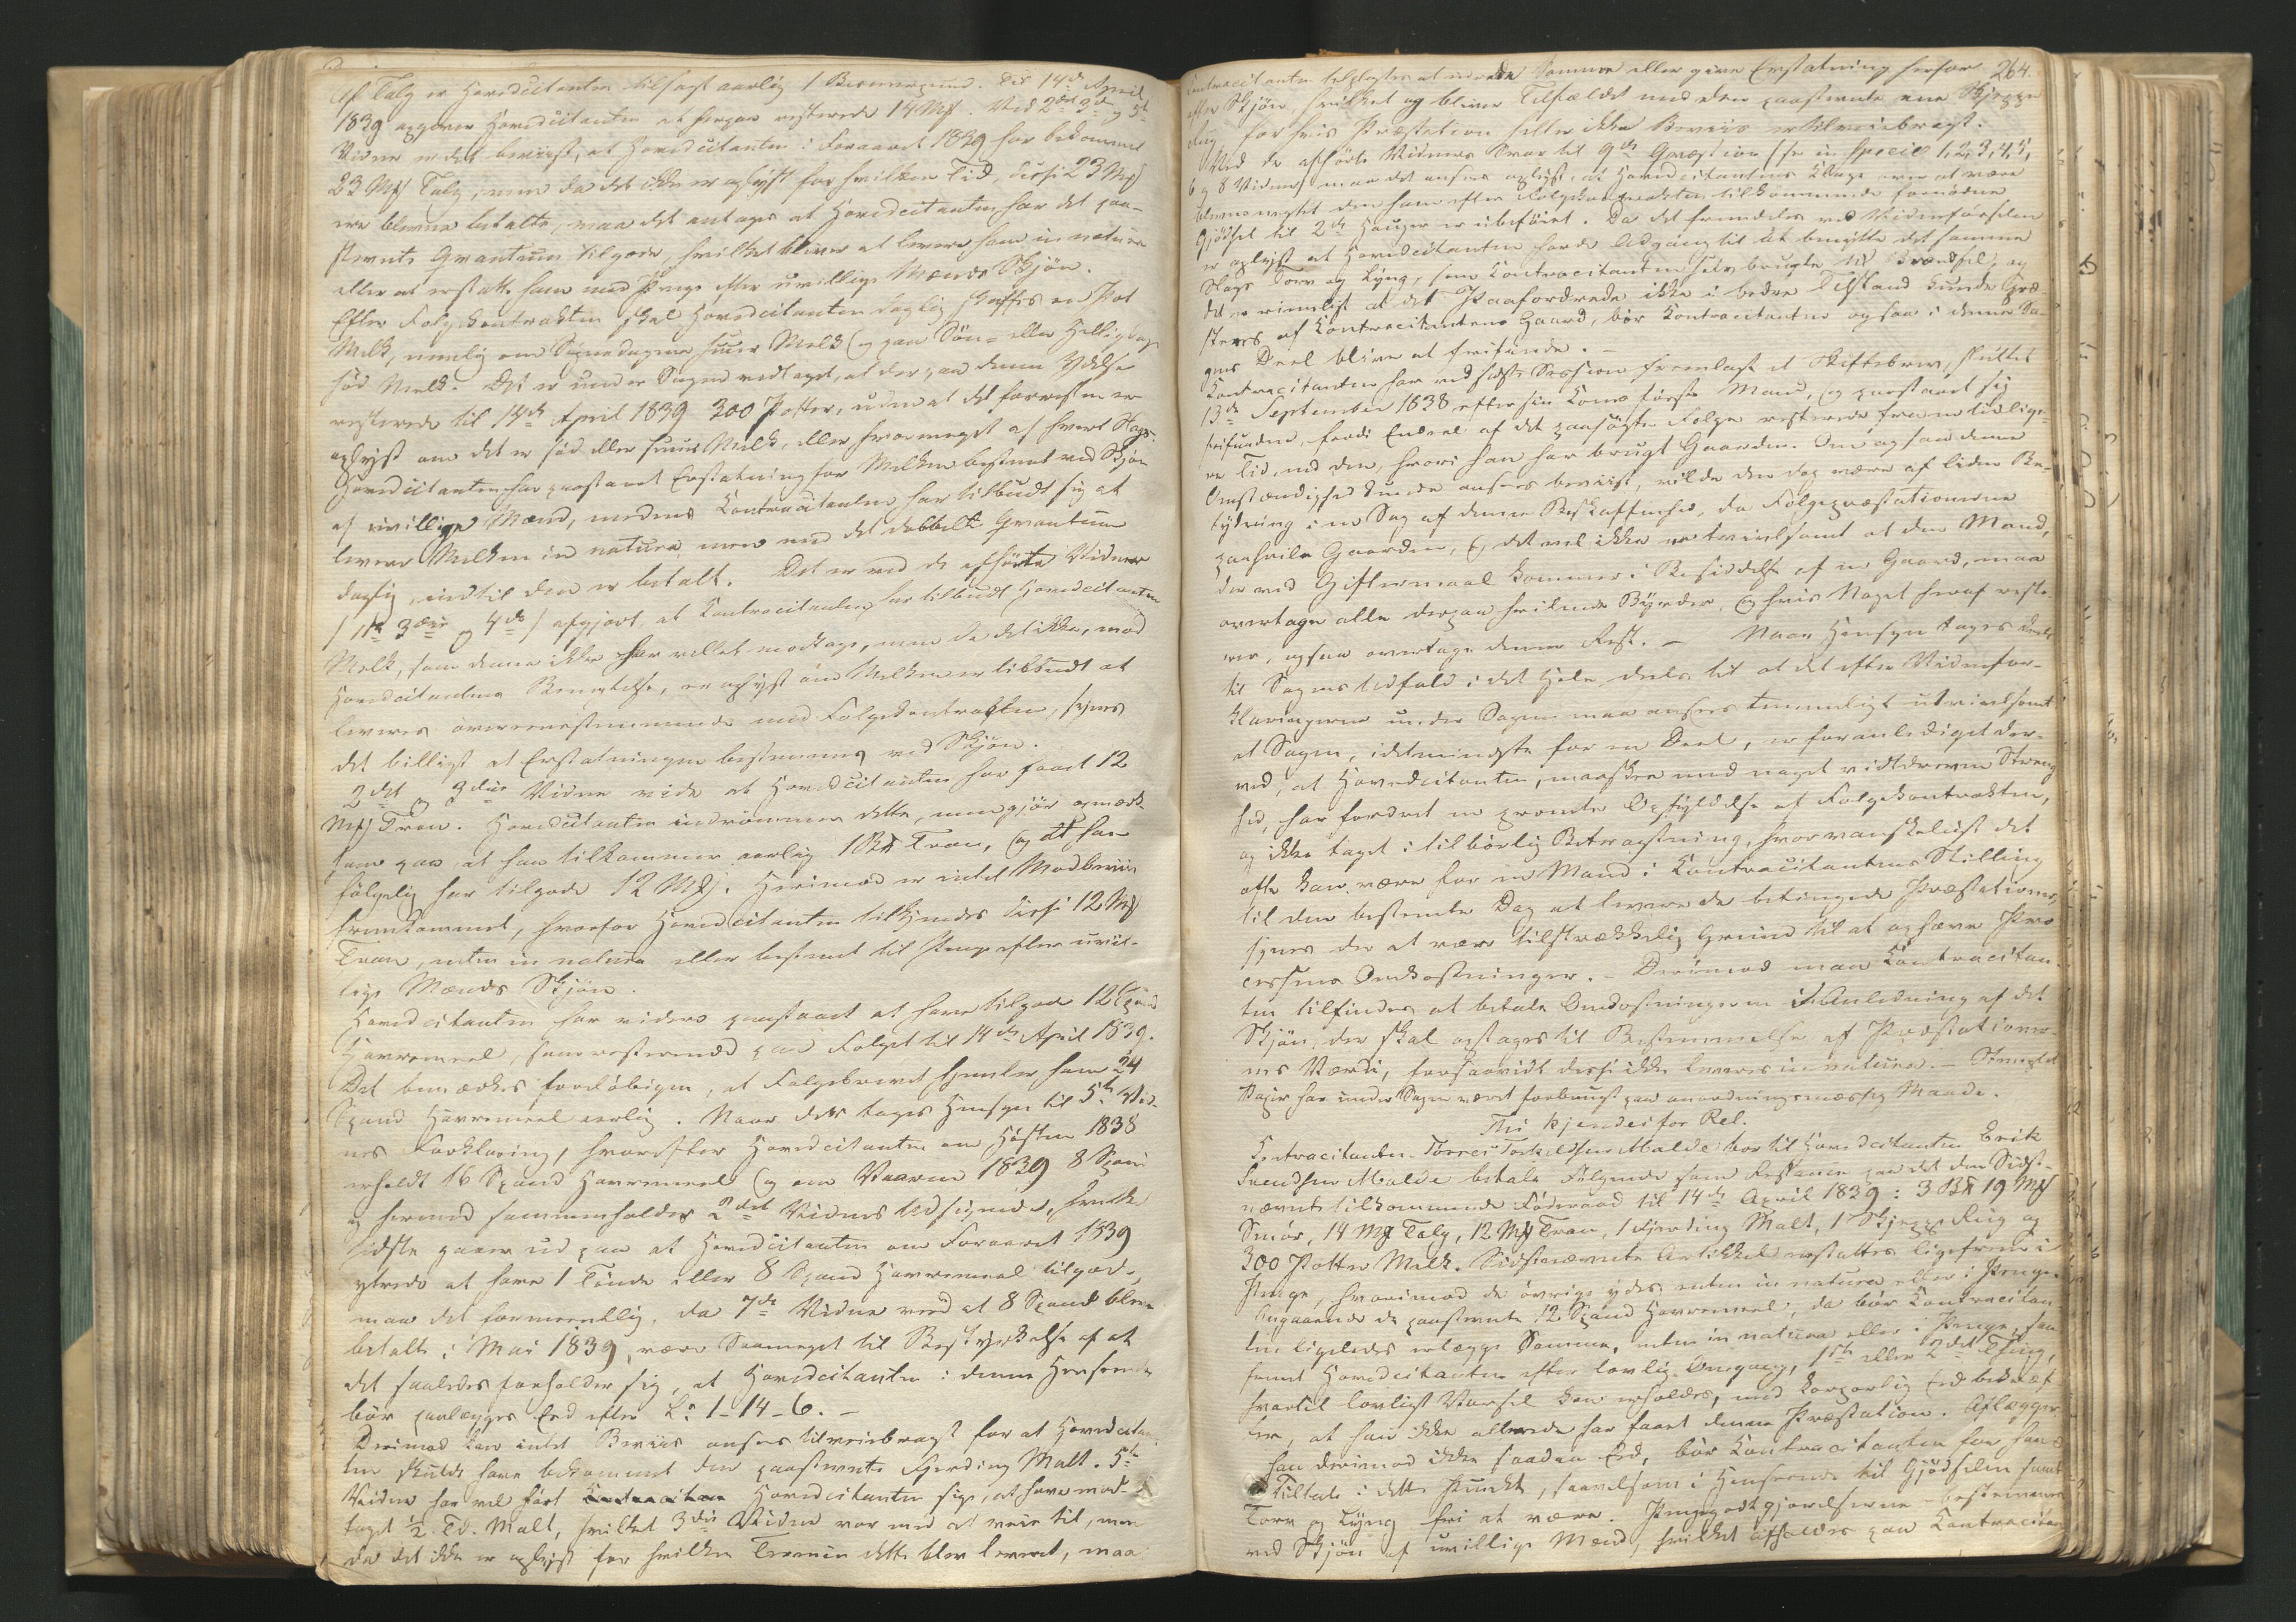 Af Talg er Hovedcitanten tilsagt aarlig 1 Bismerpund. Til 14de April
1839 opgiver Hovedcitanten at herpaa resterede 14 Mk. Ved 2det, 3die og 5te
Vidne er det beviist, at Hovedcitanten i Foraaret 1839 har bekommet
23 Mk Talg, men da det ikke er oplyst for hvilken Tid disse 23 Mk
ere blevne betalte, maa det antages at Hovedcitanten har det paa-
stævnte Qvantum tilgode, hvilket bliver at levere ham in natura
eller at erstatte ham med Penge efter uvillige Mænds Skjøn.
Efter Folgekontrakten skal Hovedcitanten daglig skaffes en Pot
Melk, nemlig om Søgnedagene suur Melk og paa Søn- eller Helligdage
sød Melk. Det er under Sagen vedtaget, at der paa denne Ydelse
resterede til 14de April 1839 300 Potter, uden at det forresten er
oplyst om det er sød eller suur Melk, eller hvormeget af hvert Slags.
Hovedcitanten har paastaaet Erstatning for Melken bestemt ved Skjøn
af uvillige Mænd, medens Contracitanten har tilbudt sig at
levere Melken in natura men med det dobbelte Qvantum
daglig, indtil den er betalt. Det er ved de afhørte Vidner
(1ste 3die og 4de) afgjort, at Contracitanten har tilbudt Hovedcitanten
Melk, som denne ikke har villet modtage, men da det ikke, mod
Hovedcitantens Benægtelse, er oplyst om Melken er tilbudt at
leveres overeensstemmende med Folgekontrakten, synes
det billigst at Erstatningen bestemmes ved Skjøn.
2det og 3die Vidne vide at Hovedcitanten har faaet 12
Mk Tran. Hovedcitanten indrømmer dette, men gjør opmærk-
som paa, at han tilkommer aarlig 1 B℔ Tran, og at han
følgelig har tilgode 12 Mk. Herimod er intet Modbeviis
fremkommet, hvorfor Hovedcitanten tilkjendes disse 12 Mk
Tran, enten in natura eller bestemt til Penge efter uvil-
lige Mænds Skjøn.
Hovedcitanten har videre paastaaet at have tilgode 12 Spand
Havremeel, som resterende paa Folget til 14de April 1839.
Det bemærkes foreløbigen, at Folgebrevet hjemler ham 24
Spand Havremeel aarlig. Naar der tages Hensyn til 5te Vid-
nes Forklaring, hvorefter Hovedcitanten om Høsten 1838
erholdt 16 Spand Havremeel og om Vaaren 1839 8 Spand
og hermed sammenholdes 2det Vidnes Udsigende, hvilke
sidste gaaer ud paa at Hovedcitanten om Foraaret 1839
ytrede at have 1 Tønde eller 8 Spand Havremeel tilgode,
maa det formeentlig, da 7de Vidne veed at 8 Spand bleve
betalte i Mai 1839, være Saameget til Bestyrkelse af at
det saaledes forholder sig, at Hovedcitanten i denne Henseende
bør paalægges Eed efter L: 1-14-6. –
Derimod kan intet Beviis ansees tilveiebragt for at Hovedcitan-
ten skulde have bekommet den paastævnte Fjerding Malt. 5te
Vidne har vel hørt Hovedcitanten sige, at have mod-
taget ½ Td. Malt, hvilket 3die Vidne var med at veie til, men
da det ikke er oplyst for hvilken Termin dette blev leveret, maa
264.
Contracitanten tilpligtes at udrede Samme eller give Erstatning herfor
efter Skjøn, hvilket og bliver Tilfældet med den paastævnte ene Skjeppe
Rug for hvis Præstation heller ikke Beviis er tilveiebragt.
Ved de afhørte Vidners Svar til 9de Qvæstion (se in specie 1, 2, 3, 4, 5,
6 og 8 Vidne) maa det ansees oplyst, at Hovedcitantens Klage over at være
bleven nægtet den ham efter Folgekontrakten tilkommende fornødne
Gjødsel til 2de Hauger er ubeføiet. Da det fremdeles ved Vidneførselen
er oplyst at Hovedcitanten havde Adgang til at benytte det samme
Slags Torv og Lyng, som Contracitanten selv brugte til Brændsel, og
det er rimeligt at det Paafordrede ikke i bedre Tilstand kunde præ-
steres af Contracitantens Gaard, bør Contracitanten ogsaa i denne Sa-
gens Deel blive at frifinde. –
Contracitanten har ved sidste Session fremlagt et Skiftebrev, sluttet
13de September 1838 efter sin Kones første Mand, og paastaaet sig
frifunden, fordi Endeel af det paasøgte Folge resterede fra en tidlige-
re Tid, end den, hvori han har brugt Gaarden. Om ogsaa denne
Omstændighed kunde ansees beviist, vilde den dog være af liden Be-
tydning i en Sag af denne Beskaffenhed, da Folgepræstationerne
paahvile Gaarden, og det vel ikke er tvivlsomt at den Mand,
der ved Giftermaal kommer i Besiddelse af en Gaard, maa
overtage alle derpaa hvilende Byrder, og hvis Noget heraf reste-
rer, ogsaa overtage denne Rest. – Naar Hensyn tages deels
til Sagens Udfald i det Hele deels til at det efter Vidnefor-
klaringerne under Sagen maa ansees temmeligt utvivlsomt
at Sagen, idetmindste for en Deel, er foranlediget der-
ved, at Hovedcitanten, maaskee med noget vidtdreven Streng-
hed, har fordret en promte Opfyldelse af Folgekontrakten,
og ikke taget i tilbørlig Betragtning, hvor vanskeligt det
ofte kan være for en Mand i Contracitantens Stilling
til den bestemte Dag at levere de betingede Præstationer,
synes der at være tilstrækkelig Grund til at ophæve Pro-
cessens Omkostninger. – Derimod maa Contracitan-
ten tilfindes at betale Omkostningerne i Anledning af det
Skjøn, der skal optages til Bestemmelse af Præstationer-
nes Værdi, forsaavidt disse ikke leveres in natura. – Stemplet
Papir har under Sagen været forbrugt paa anordningsmæssig Maade.
Thi kjendes for Ret.
Contracitanten Tørres Torkildsen Malde bør til Hovedcitanten Erik
Svendsen Malde betale Følgende som Restance paa det den Sidst-
nævnte tilkommende Føderaad til 14de April 1839: 3 B℔ 19 Mk
Smør, 14 Mk Talg, 12 Mk Tran, 1 Fjerding Malt, 1 Skjeppe Rug og
300 Potter Melk. Sidstnævnte Artikkel erstattes ligefrem i
Penge, hvorimod de øvrige ydes enten in natura eller i Penge.
Angaaende de paastævnte 12 Spand Havremeel, da bør Contracitan-
ten ligeledes erlægge Samme, enten in natura eller i Penge, saa-
fremt Hovedcitanten efter lovlig Omgang, 1ste eller 2det Thing,
hvortil lovligt Varsel kan erholdes, med korporlig Eed bekræf-
ter, at han ikke allerede har faaet denne Præstation. Aflægger
han derimod ikke saadan Eed, bør Contracitanten for Hans
Tiltale i dette Punct, saavelsom i Henseende til Gjødselen samt
Torv og Lyng fri at være. Pengegodtgjørelserne bestemmes
ved Skjøn af uvillige Mænd, hvilket afholdes paa Contracitan-